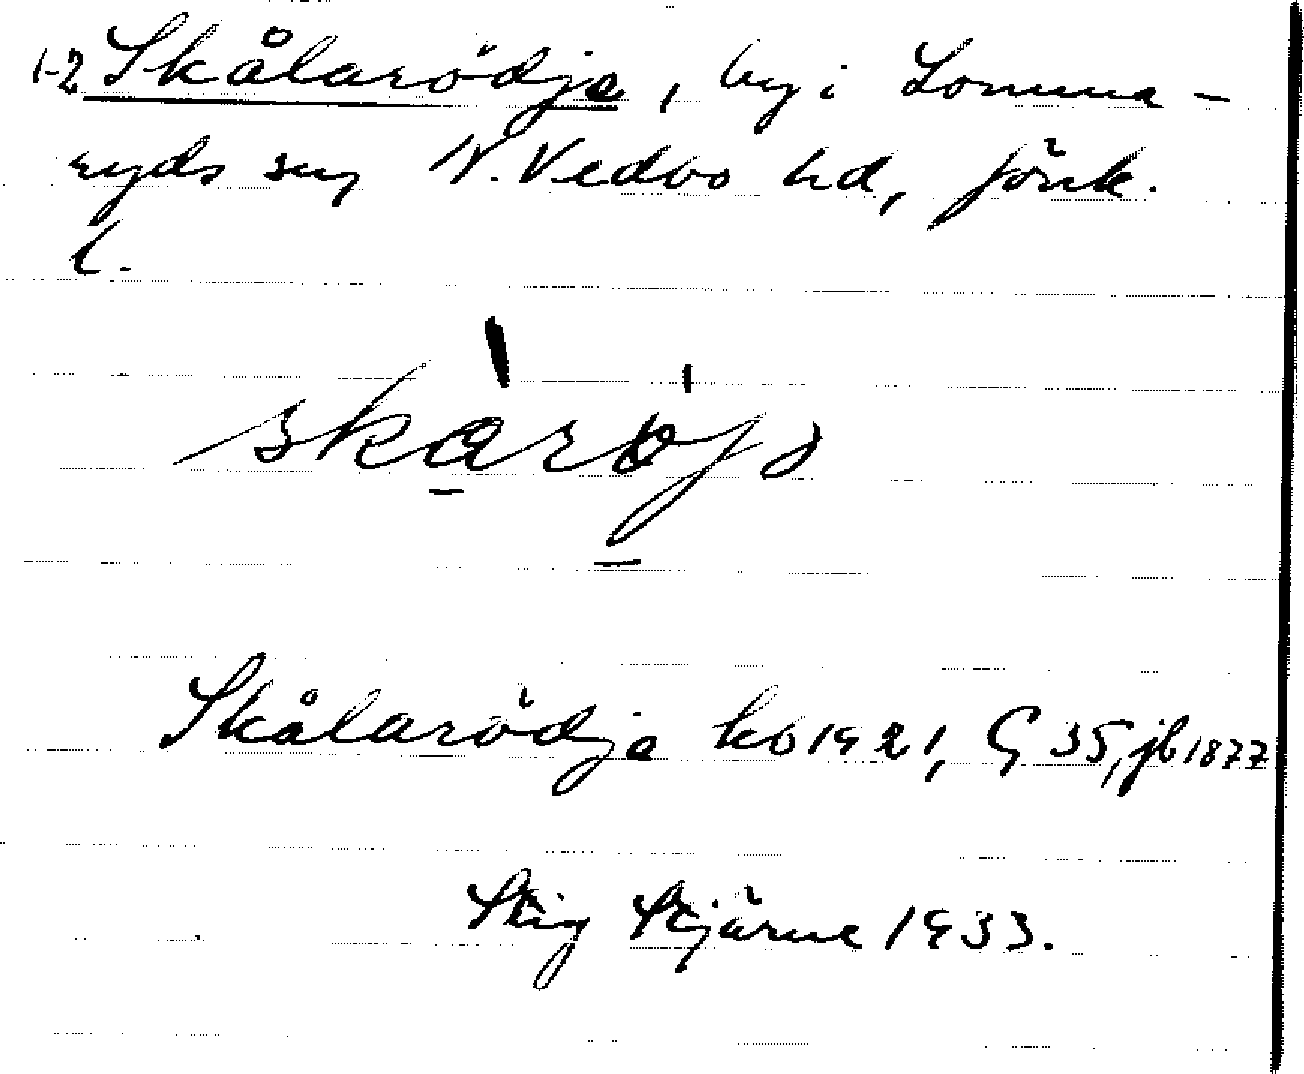 1-2 Skålarödja, by i Lomma-
ryds sn, N. Vedbo hd, Jönk.
l.
skaröja
Skålarödja kb 1921, G 35, jb 1877
Stig Stjärne 1933.